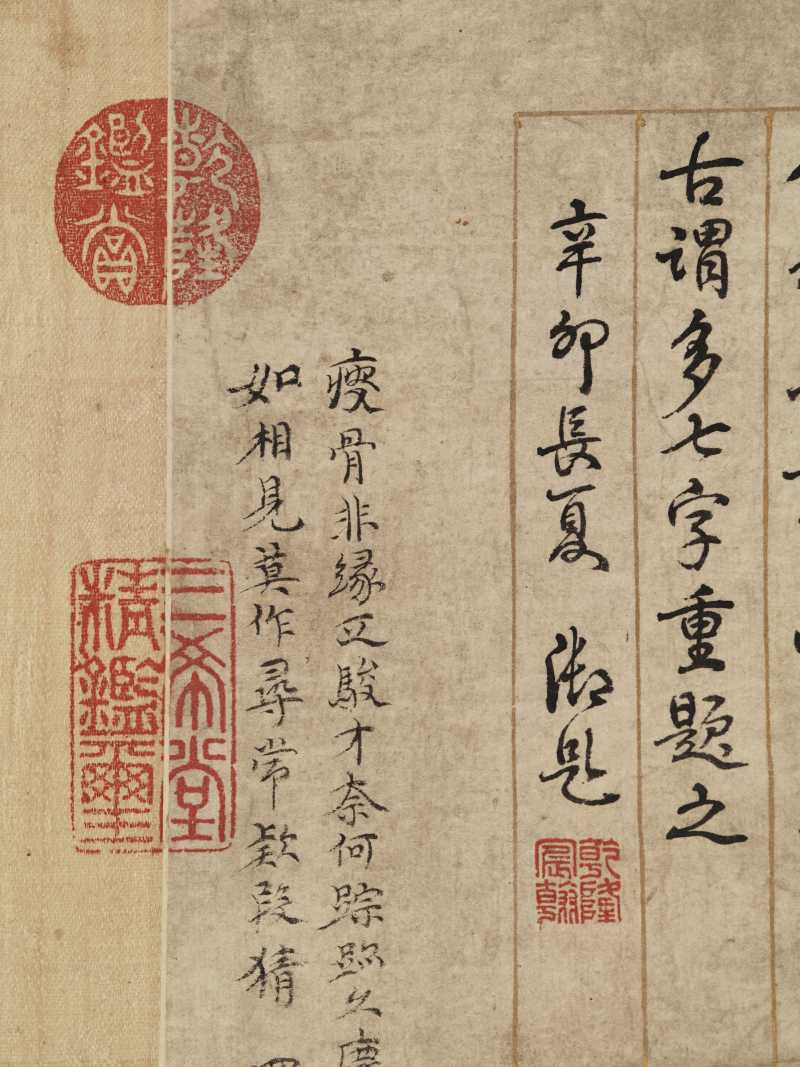 古謂多七字重題之
辛卯長夏 御題
乾隆宸翰
瘦骨非緣乏駿才奈何踪跡久塵
如相見莫作尋常欵段猜
乾隆鑑賞
三希堂精鑑璽